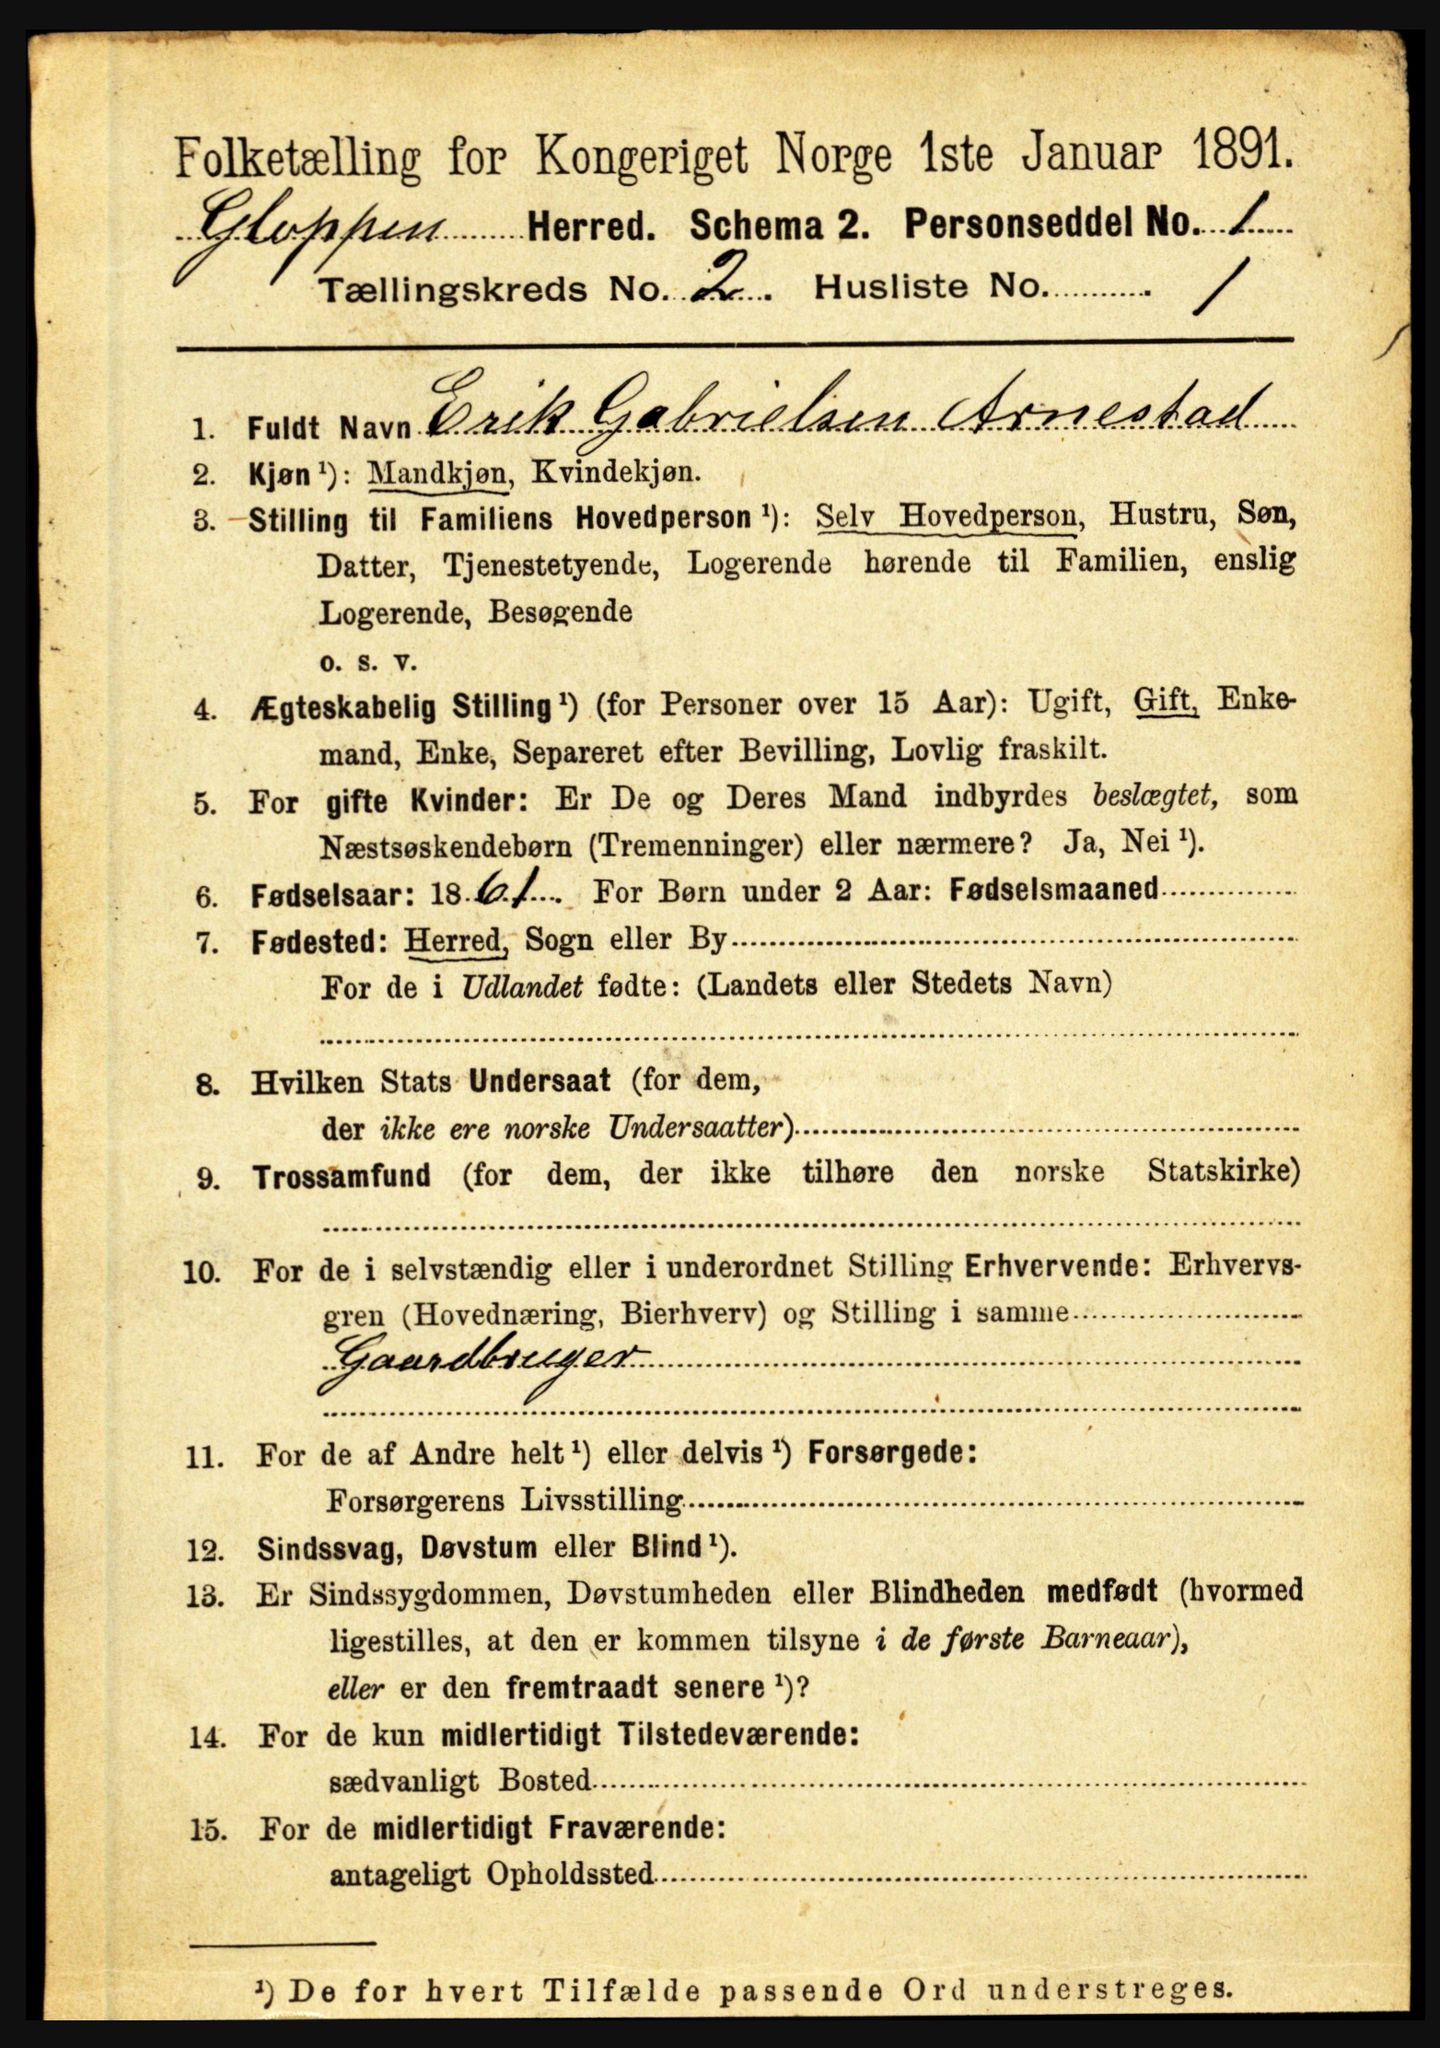 Folketælling for Kongeriget Norge 1ste Januar 1891.
Gloppen Herred. Schema 2. Personseddel No. 1
Tællingskreds No. 2. Husliste No. 1
1. Fuldt Navn Erik Gabrielsen Arnestad
2. Kjøn ¹): Mandkjøn, Kvindekjøn.
3. Stilling til Familiens Hovedperson ¹): Selv Hovedperson, Hustru, Søn,
Datter, Tjenestetyende, Logerende hørende til Familien, enslig
Logerende, Besøgende
o. s. v.
4. Ægteskabelig Stilling ¹) (for Personer over 15 Aar): Ugift, Gift, Enke-
mand, Enke, Separeret efter Bevilling, Lovlig fraskilt.
5. For gifte Kvinder: Er De og Deres Mand indbyrdes beslægtet, som
Næstsøskendebørn (Tremenninger) eller nærmere? Ja, Nei ¹).
6. Fødselsaar: 1861. For Børn under 2 Aar: Fødselsmaaned
7. Fødested: Herred, Sogn eller By
For de i Udlandet fødte: (Landets eller Stedets Navn)
8. Hvilken Stats Undersaat (for dem,
der ikke ere norske Undersaatter)
9. Trossamfund (for dem, der ikke tilhøre den norske Statskirke)
10. For de i selvstændig eller i underordnet Stilling Erhvervende: Erhvervs-
gren (Hovednæring, Bierhverv) og Stilling i samme
Gaardbruger
11. For de af Andre helt ¹) eller delvis ¹) Forsørgede:
Forsørgerens Livsstilling
12. Sindssvag, Døvstum eller Blind ¹).
13. Er Sindssygdommen, Døvstumheden eller Blindheden medfødt (hvormed
ligestilles, at den er kommen tilsyne i de første Barneaar),
eller er den fremtraadt senere ¹)?
14. For de kun midlertidigt Tilstedeværende:
sædvanligt Bosted
15. For de midlertidigt Fraværende:
antageligt Opholdssted
¹) De for hvert Tilfælde passende Ord understreges.